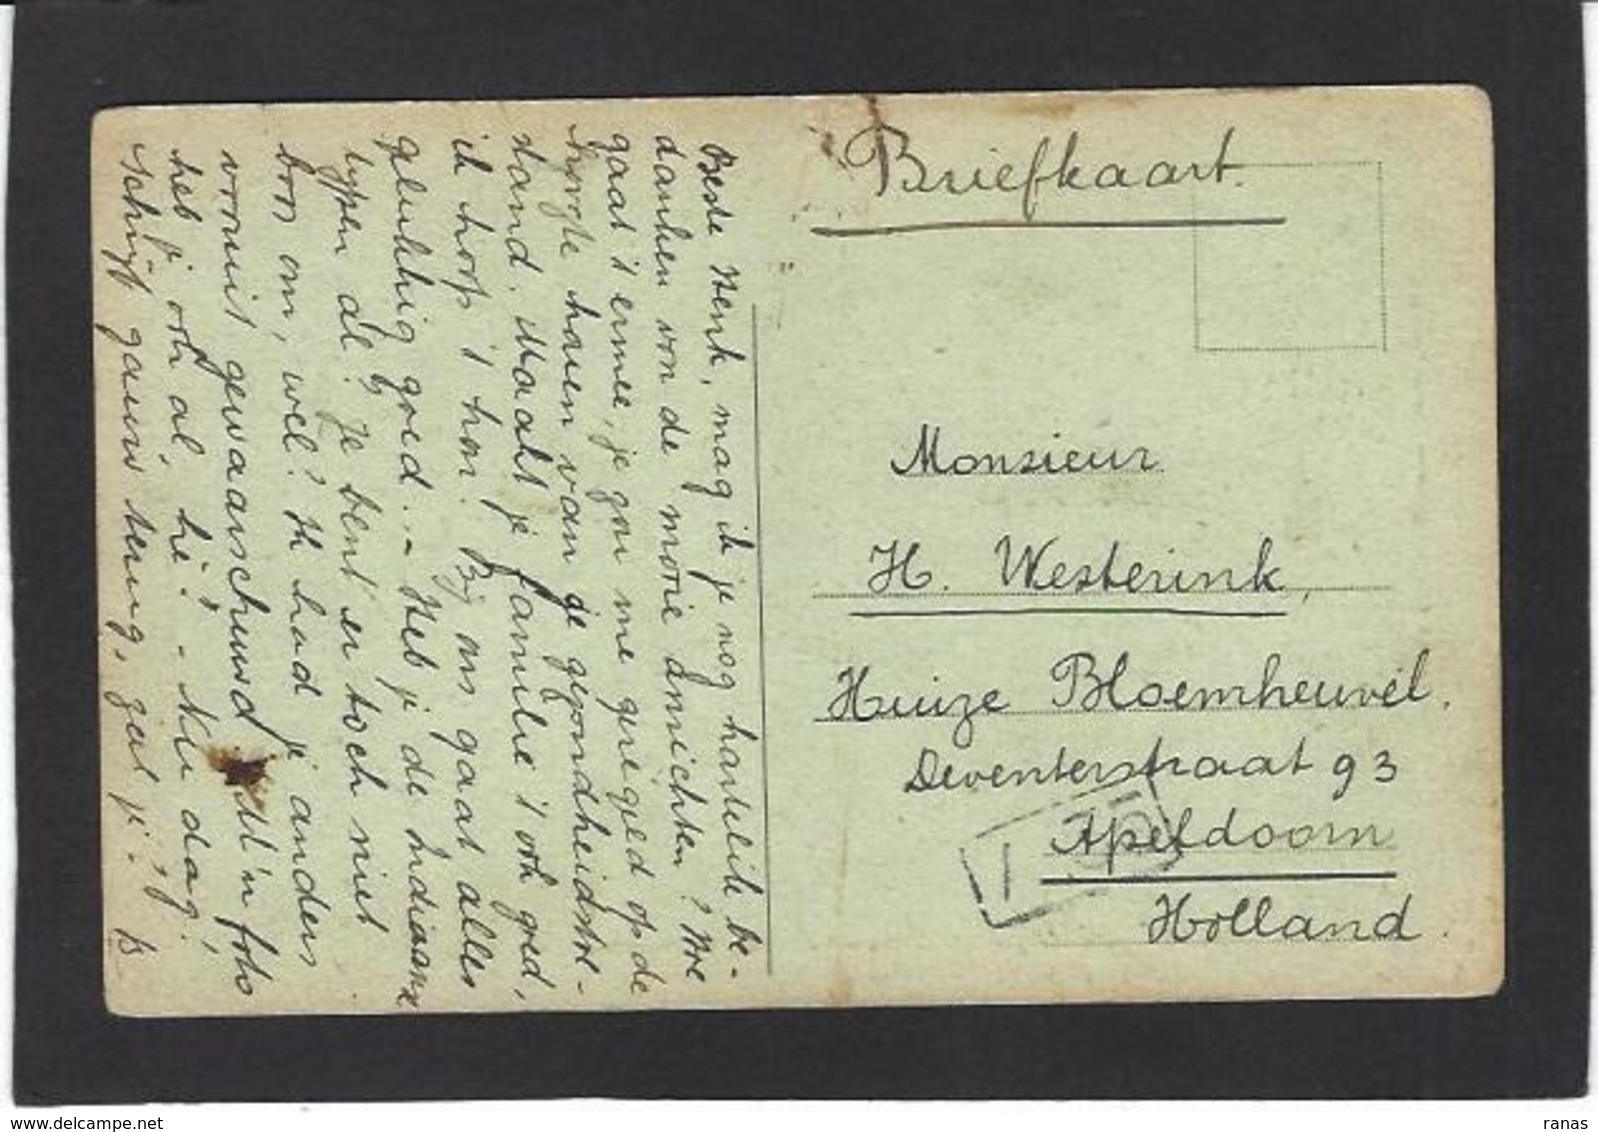 Briefkaart.
Monsieur
H. Westerink,
Huize Bloemheuvel.
Deventerstraat 93
Apeldoorn
Holland.
T
Beste Henk, mag ik je nog hartelik be-
danken von de mooie annichten? Hoe
gaat 't ermee, je zou me geregeld op de
hoogte houen van je gezondheidstoe-
stand. Maakt je familie 't ook goed,
ik hoop 't hoor! Bij ons gaat alles
gelukkig goed... - Heb je de Indiaanse
typen al? Je bent er toch niet
boos om, wel? Ik had je anders
vooruit gewaarschuwd 'n foto
heb je ook al, hè! - Nu dag!,
Schrijf gauw terug, zal je? B
delcampe.net
ranas